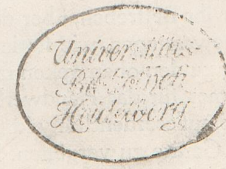 Universitäts-
Bibliothek
Heidelberg